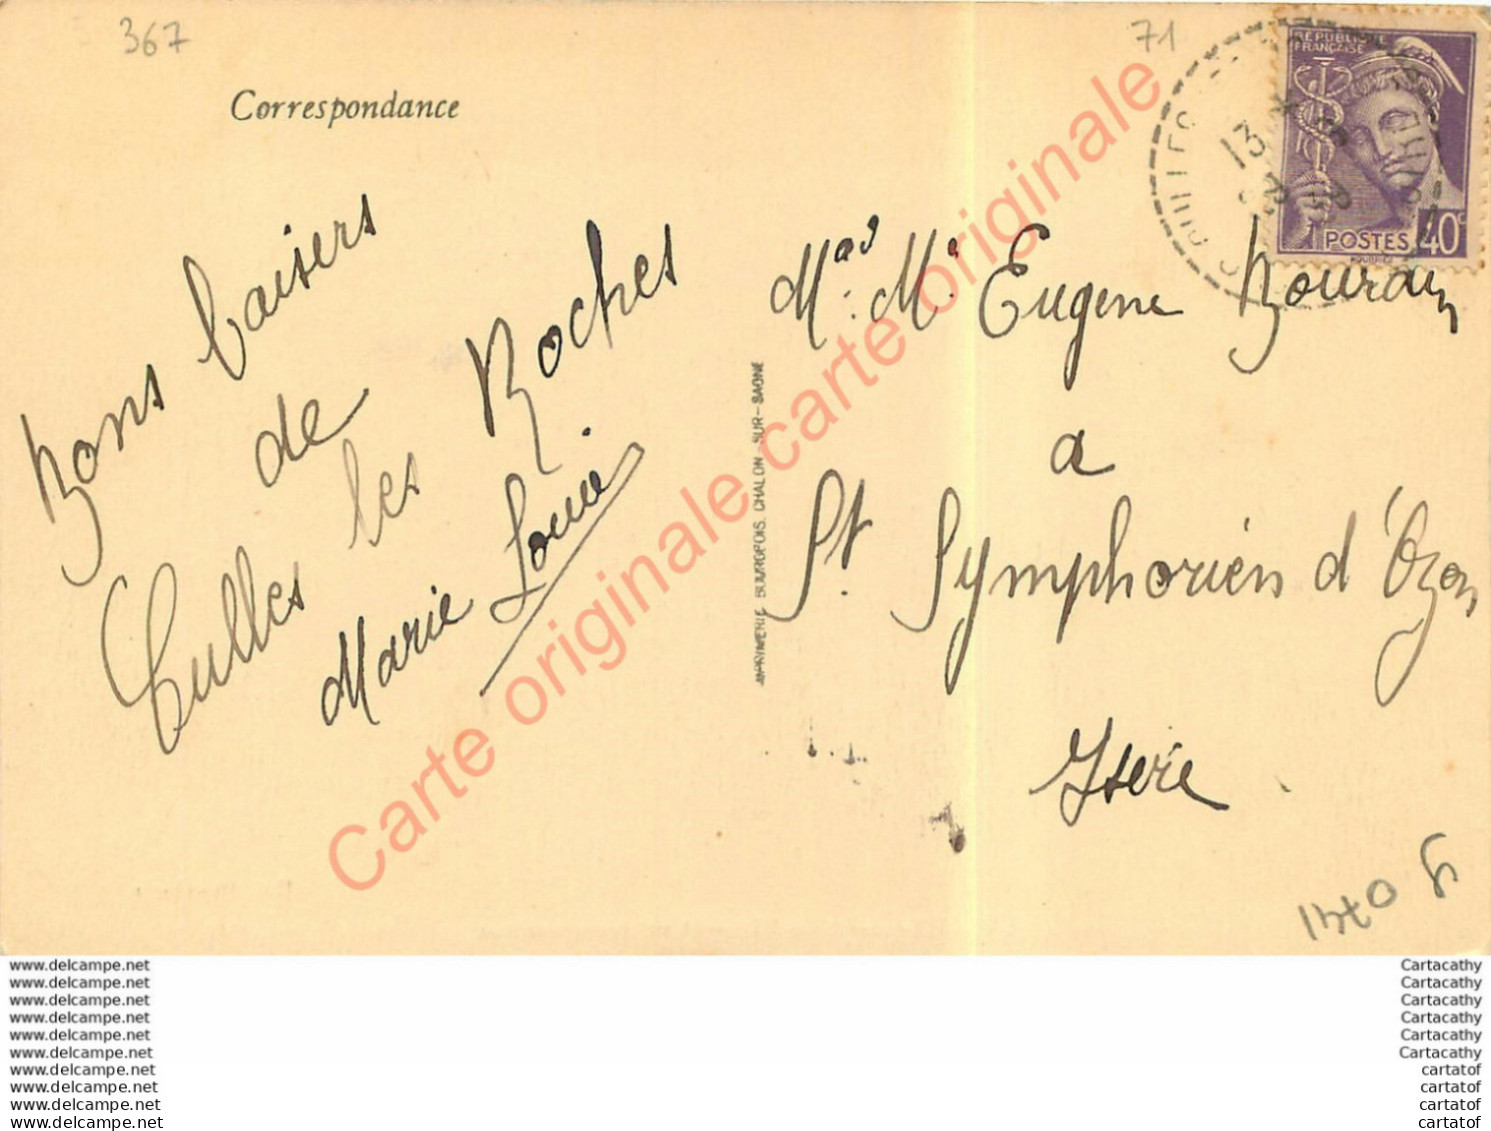 367
71
Correspondance
RÉPUBLIQUE
FRANÇAISE
POSTES 40c
13
Bons baisers
de
Culles les Roches
Marie Louise
IMPRIMERIE BOURGEOIS. CHALON-SUR-SAONE
Eugene
a
St. Symphorien d'Ozon
Isere
Carte originale carte originale carte originale
www.delcampe.net
www.delcampe.net
www.delcampe.net
www.delcampe.net
www.delcampe.net
www.delcampe.net
www.delcampe.net
www.delcampe.net
www.delcampe.net
www.delcampe.net
Cartacathy
Cartacathy
Cartacathy
Cartacathy
Cartacathy
Cartacathy
cartatof
cartatof
cartatof
cartatof